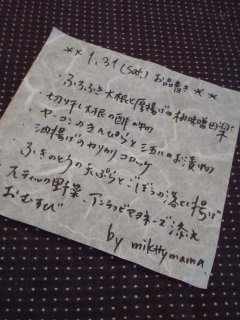 ** 1.31 (Sat) お品書き **
・ふろふき大根と厚揚げの柚味噌田楽
・切り干し大根の酢の物
・ヤーコンのきんぴらと三五八のお漬物
油揚げのカリカリコロッケ
・ふきのとうの天ぷらとごぼうの巻き揚げ
スティック野菜 アンチョビマヨネーズ添え
おむすび
by mikttymama